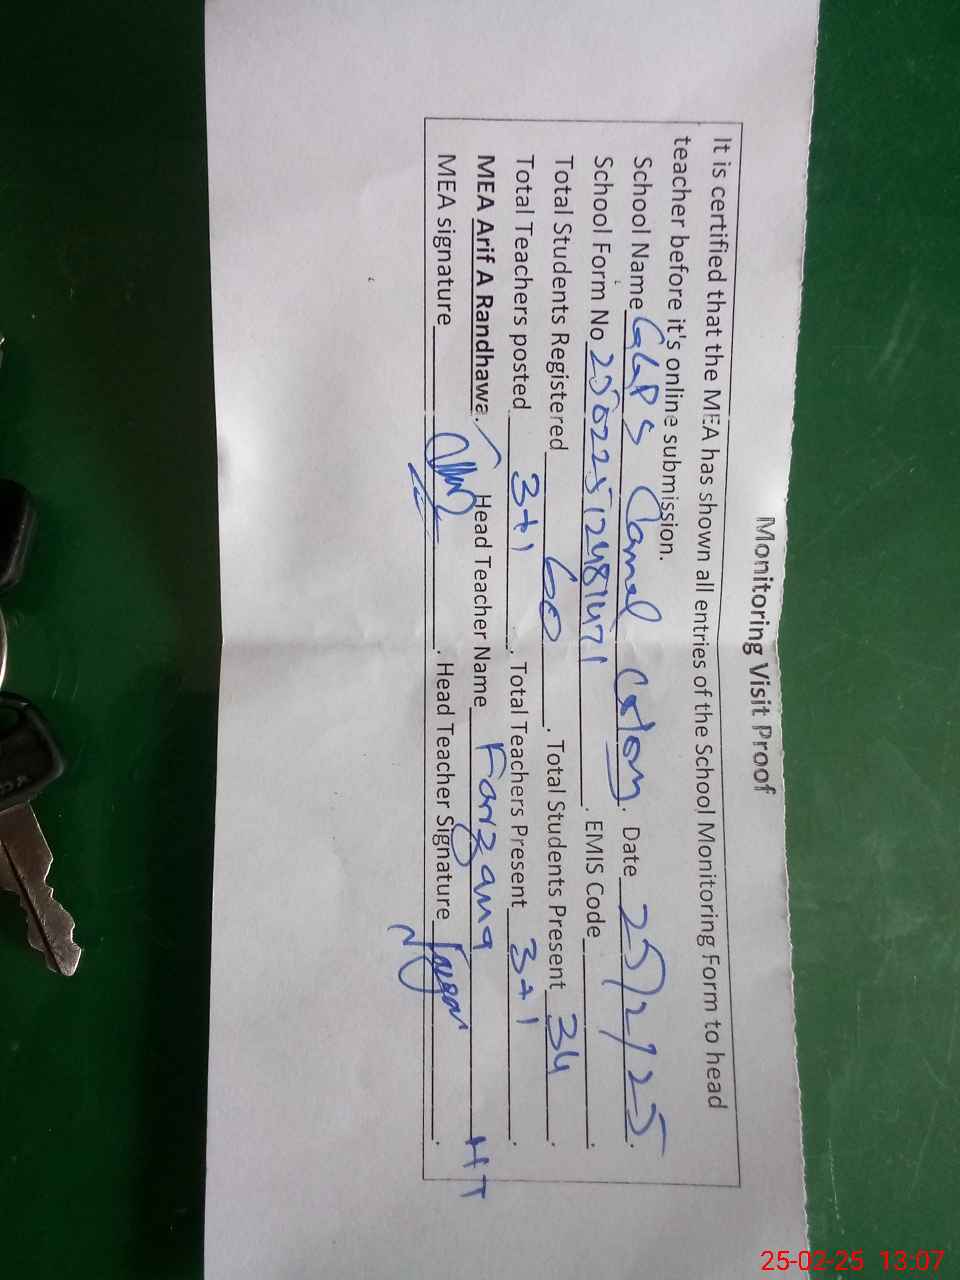 Monitoring Visit Proof
It is certified that the MEA has shown all entries of the School Monitoring Form to head
teacher before it's online submission.
School Name GGPS Camel Colony. Date 25/2/25.
School Form No 25022512481471. EMIS Code
Total Students Registered 60. Total Students Present 34.
Total Teachers posted 3+1. Total Teachers Present 3+1.
MEA Arif A Randhawa. Head Teacher Name Farzana HT
MEA signature. Head Teacher Signature
25-02-25 13:07